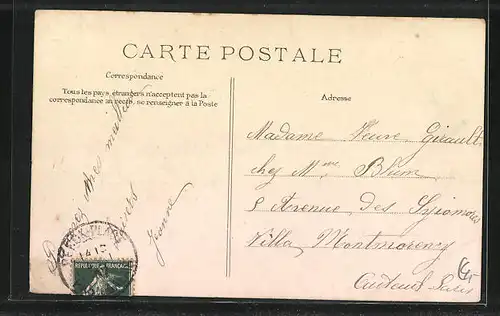 CARTE POSTALE
Correspondance
Tous les pays étrangers n'acceptent pas la
correspondance au recto, se renseigner à la Poste
Adresse
mes meilleurs
Jeanne
Madame Veuve Girault
chez Mme Blum
8 Avenue des Sycomores
Villa Montmorency
Auteuil Paris
BERCK-PLAGE
REPUBLIQUE FRANÇAISE